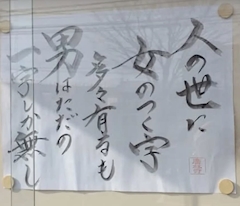 人の世に
女のつく字
多々有るも
男はただの
一字しか無し